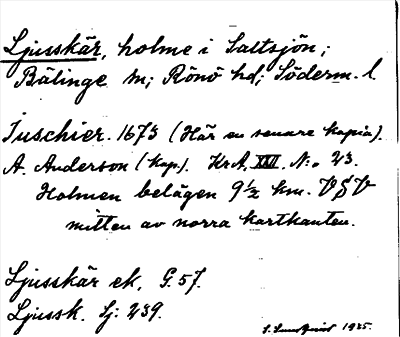 Ljusskär, holme i Saltsjön;
Bälinge sn; Rönö hd; Söderm. l
Tuschier. 1673 (Här en senare kopia).
A. Anderson (kop.). KrA, XVII. N:o 23.
Holmen belägen 9 1/2 km. VSV
mitten av norra kartkanten.
Ljusskär ek, G. 57.
Ljussk. Sj: 239.
S. Lundqvist 1925.